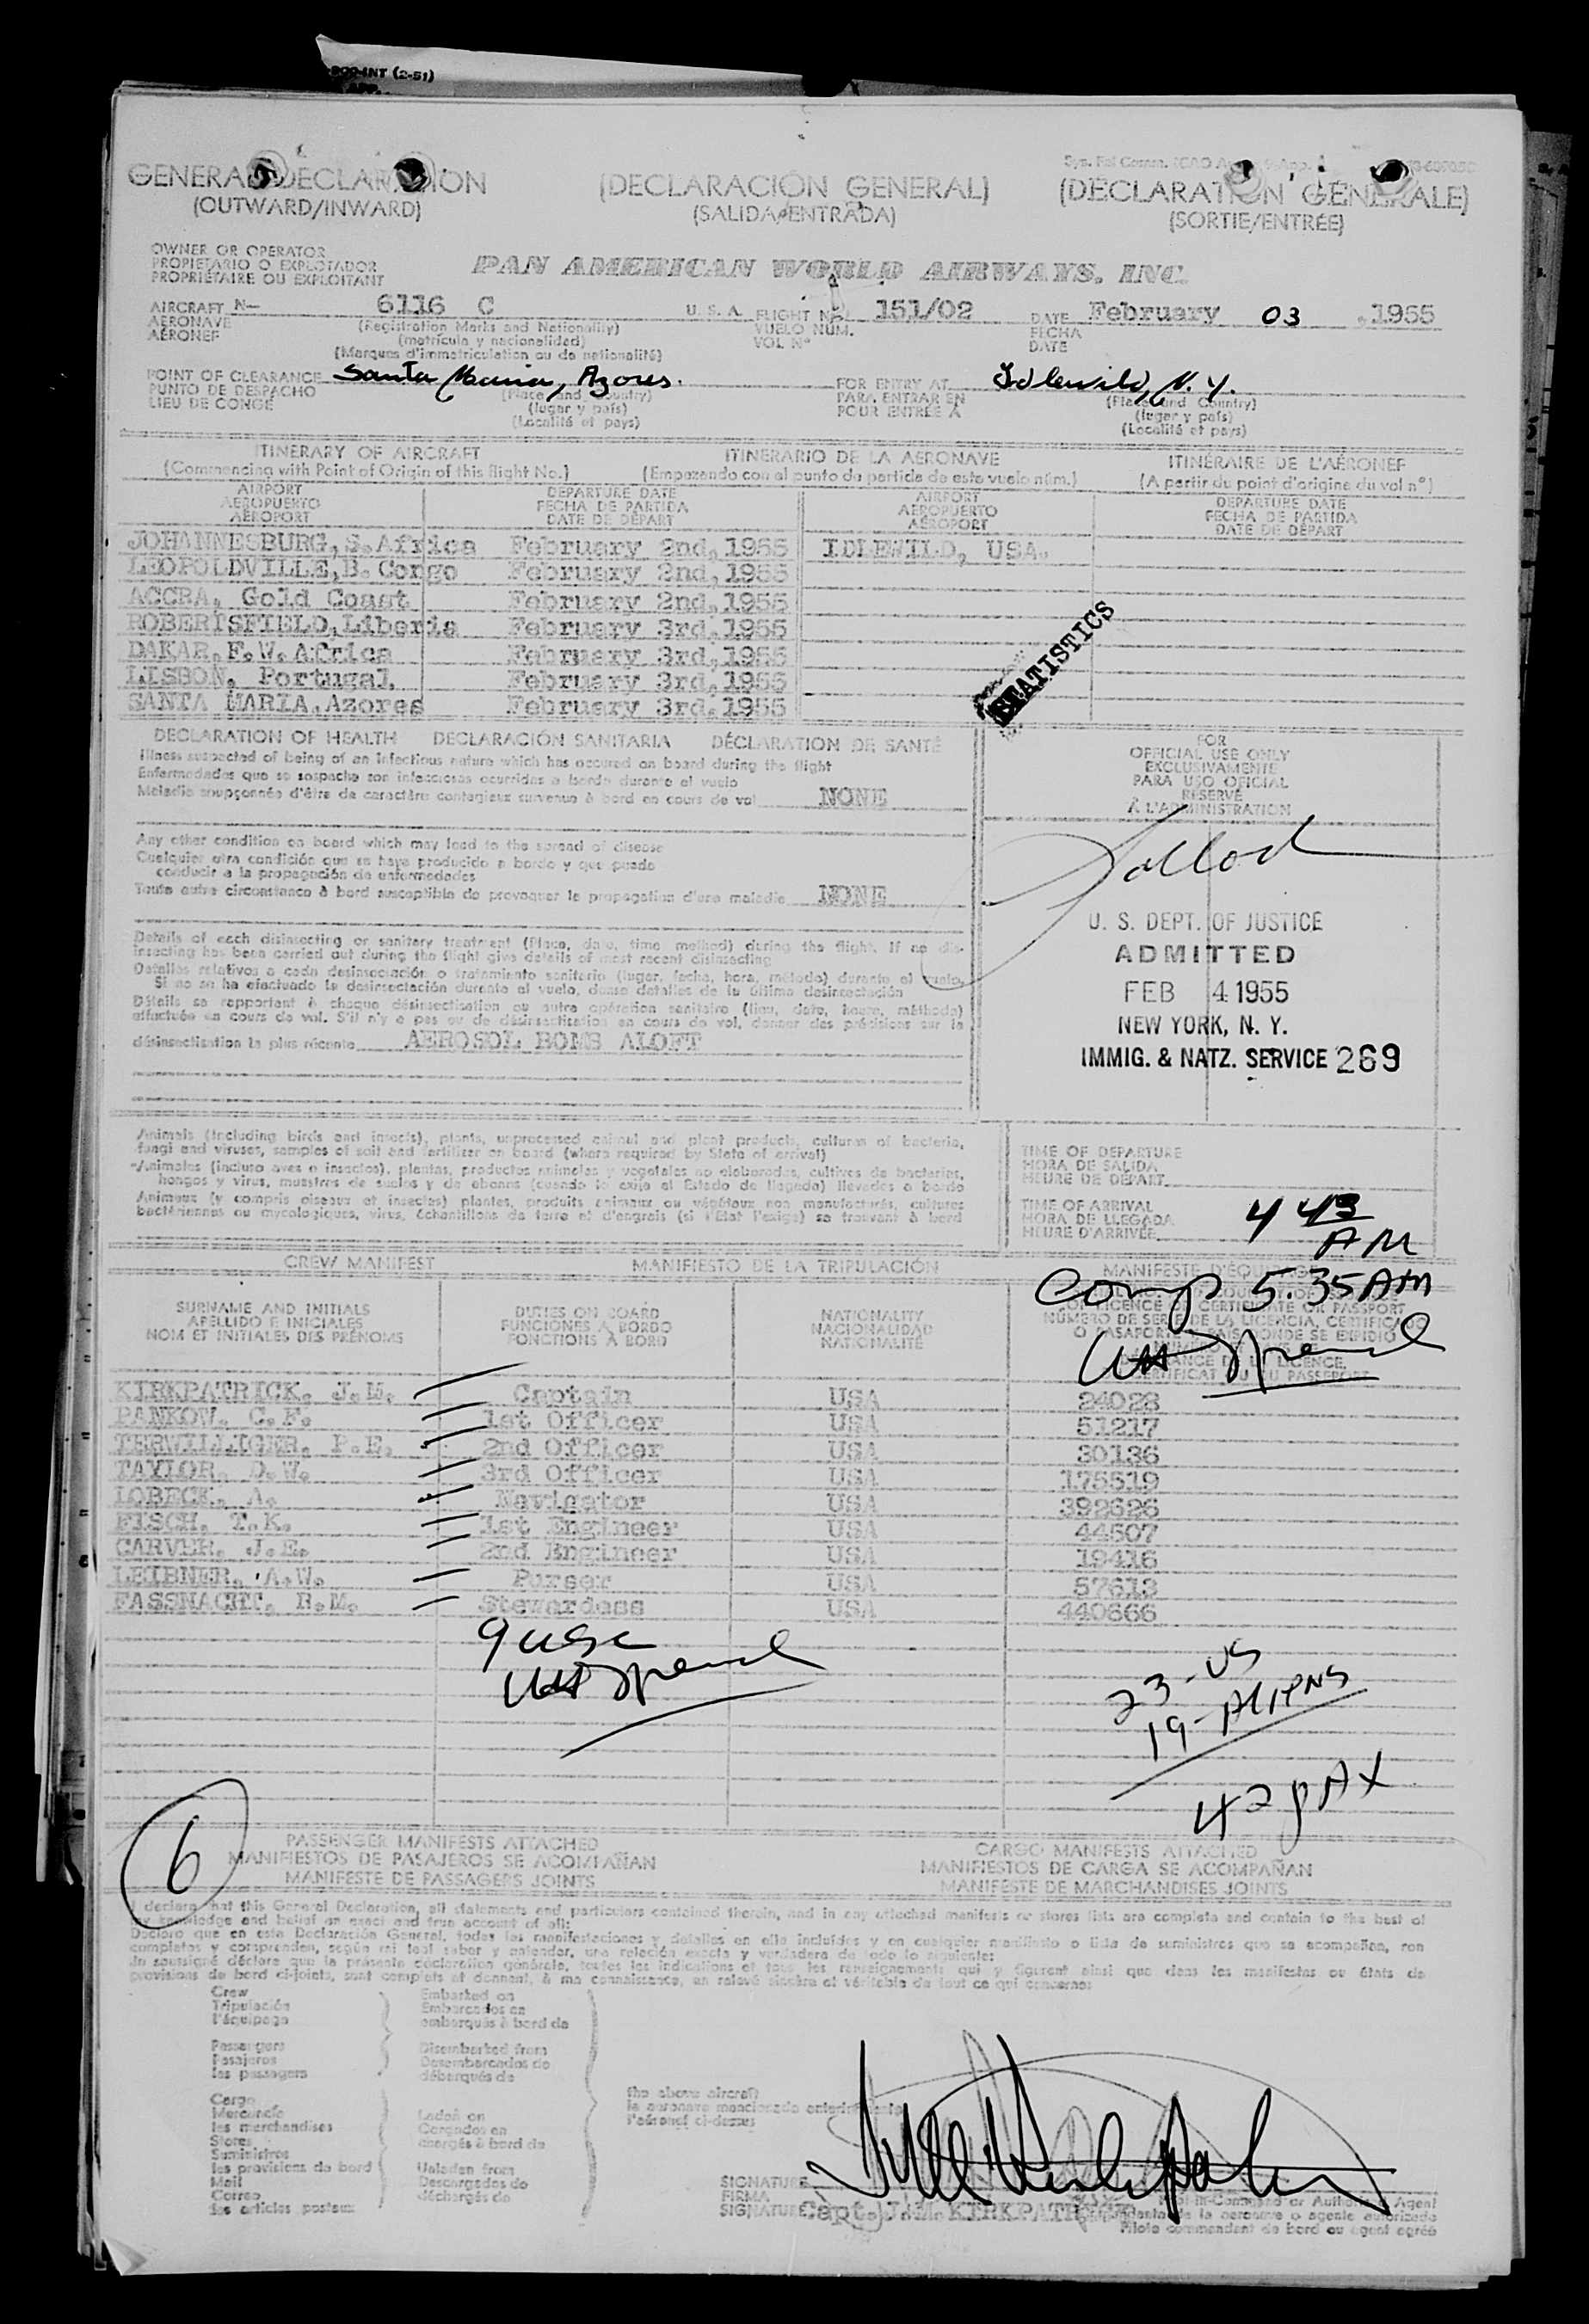 800-INT (2-51)
GENERAL DECLARATION (DECLARACIÓN GENERAL) (DÉCLARATION GÉNÉRALE)
(OUTWARD/INWARD) (SALIDA/ENTRADA) (SORTIE/ENTRÉE)
OWNER OR OPERATOR
PROPIETARIO O EXPLOTADOR
PROPRIÉTAIRE OU EXPLOITANT
PAN AMERICAN WORLD AIRWAYS, INC.
AIRCRAFT N— 6116 C U. S. A. FLIGHT Nº 151/02 DATE February 03, 1955
AERONAVE (Registration Marks and Nationality) VUELO NÚM. FECHA
AÉRONEF (matrícula y nacionalidad) VOL Nº DATE
(Marques d'immatriculation ou de nationalité)
POINT OF CLEARANCE Santa Maria, Azores. FOR ENTRY AT Idlewild, N.Y.
PUNTO DE DESPACHO (Place and Country) PARA ENTRAR EN (Place and Country)
LIEU DE CONGÉ (lugar y país) POUR ENTRÉE À (lugar y país)
(Localité et pays) (Localité et pays)
ITINERARY OF AIRCRAFT ITINERARIO DE LA AERONAVE ITINÉRAIRE DE L'AÉRONEF
(Commencing with Point of Origin of this flight No.) (Empezando con el punto de partida de este vuelo núm.) (A partir du point d'origine du vol nº)
AIRPORT DEPARTURE DATE AIRPORT DEPARTURE DATE
AEROPUERTO FECHA DE PARTIDA AEROPUERTO FECHA DE PARTIDA
AÉROPORT DATE DE DÉPART AÉROPORT DATE DE DÉPART
JOHANNESBURG, S. Africa February 2nd, 1955 IDLEWILD, USA.
LEOPOLDVILLE, B. Congo February 2nd, 1955
ACCRA, Gold Coast February 2nd, 1955
ROBERTSFIELD, Liberia February 3rd, 1955
DAKAR, F.W. Africa February 3rd, 1955
LISBON, Portugal February 3rd, 1955
SANTA MARIA, Azores February 3rd, 1955
STATISTICS
DECLARATION OF HEALTH DECLARACIÓN SANITARIA DÉCLARATION DE SANTÉ
Illness suspected of being of an infectious nature which has occured on board during the flight
Enfermedades que se sospecha son infecciosas ocurridas a bordo durante el vuelo
Maladie soupçonnée d'être de caractère contagieux survenue à bord en cours de vol NONE
FOR
OFFICIAL USE ONLY
EXCLUSIVAMENTE
PARA USO OFICIAL
RESERVÉ
À L'ADMINISTRATION
Any other condition on board which may lead to the spread of disease
Cualquier otra condición que se haya producido a bordo y que pueda
conducir a la propagación de enfermedades
Toute autre circonstance à bord susceptible de provoquer la propagation d'une maladie NONE
Details of each disinsecting or sanitary treatment (Place, date, time method) during the flight. If no dis-
insecting has been carried out during the flight give details of most recent disinsecting
Detalles relativos a cada desinsectación o tratamiento sanitario (lugar, fecha, hora, método) durante el vuelo.
Si no se ha efectuado la desinsectación durante el vuelo, dense detalles de la última desinsectación
Détails se rapportant à chaque désinsectisation ou autre opération sanitaire (lieu, date, heure, méthode)
effectuée en cours de vol. S'il n'y a pas eu de désinsectisation en cours de vol, donner des précisions sur la
désinsectisation la plus récente AEROSOL BOMB ALOFT
U. S. DEPT. OF JUSTICE
ADMITTED
FEB 4 1955
NEW YORK, N. Y.
IMMIG. & NATZ. SERVICE 269
Animals (Including birds and insects), plants, unprocessed animal and plant products, cultures of bacteria,
fungi and viruses, samples of soil and fertilizer on board (where required by State of arrival)
Animales (incluso aves e insectos), plantas, productos animales y vegetales no elaborados, cultivos de bacterias,
hongos y virus, muestras de suelos y de abonos (cuando lo exija el Estado de llegada) llevados a bordo
Animaux (y compris oiseaux et insectes) plantes, produits animaux ou végétaux non manufacturés, cultures
bactériennes ou mycologiques, virus, échantillons de terre et d'engrais (si l'État l'exige) se trouvant à bord
TIME OF DEPARTURE
HORA DE SALIDA
HEURE DE DÉPART
TIME OF ARRIVAL
HORA DE LLEGADA
HEURE D'ARRIVÉE
4 43
AM
CREW MANIFEST MANIFIESTO DE LA TRIPULACIÓN MANIFESTE D'ÉQUIPAGE
Comp 5 35 AM
SURNAME AND INITIALS DUTIES ON BOARD NATIONALITY
APELLIDO E INICIALES FUNCIONES A BORDO NACIONALIDAD
NOM ET INITIALES DES PRÉNOMS FONCTIONS À BORD NATIONALITÉ
LICENCE CERTIFICATE OR PASSPORT
NÚMERO DE SERIE DE LA LICENCIA, CERTIFICADO
O PASAPORTE Y PAÍS DONDE SE EXPIDIÓ
KIRKPATRICK, J.M. Captain USA 24028
PANKOW, C.F. 1st Officer USA 51217
TERWILLIGER, P.E. 2nd Officer USA 30136
TAYLOR, D.W. 3rd Officer USA 175519
LOBECK, A. Navigator USA 392626
FISCH, T.K. 1st Engineer USA 44507
CARVER, J.E. 2nd Engineer USA 19416
LEIBNER, A.W. Purser USA 57613
FASSNACHT, R.M. Stewardess USA 440666
9 USC
23-US
19-ALIENS
42 PAX
6
PASSENGER MANIFESTS ATTACHED CARGO MANIFESTS ATTACHED
MANIFIESTOS DE PASAJEROS SE ACOMPAÑAN MANIFIESTOS DE CARGA SE ACOMPAÑAN
MANIFESTE DE PASSAGERS JOINTS MANIFESTE DE MARCHANDISES JOINTS
I declare that this General Declaration, all statements and particulars contained therein, and in any attached manifests or stores lists are complete and contain to the best of
my knowledge and belief an exact and true account of all:
Declaro que en esta Declaración General, todas las manifestaciones y detalles en ella incluidos y en cualquier manifiesto o lista de suministros que se acompañan, son
completos y comprenden, según mi leal saber y entender, una relación exacta y verdadera de todo lo siguiente:
Je soussigné déclare que la présente déclaration générale, toutes les indications et tous les renseignements qui y figurent ainsi que dans les manifestes ou états de
provisions de bord ci-joints, sont complets et donnent, à ma connaissance, un relevé sincère et véritable de tout ce qui concerne:
Crew Embarked on
Tripulación Embarcados en
l'équipage embarqués à bord de
Passengers Disembarked from
Pasajeros Desembarcados de
les passagers débarqués de
Cargo
Mercancía
les marchandises
Stores
Suministros
les provisions de bord
Mail
Correo
les articles postaux
Laden on
Cargados en
chargés à bord de
Unladen from
Descargados de
déchargés de
the above aircraft
la aeronave mencionada anteriormente
l'aéronef ci-dessus
SIGNATURE
FIRMA
SIGNATURE Capt. J.M. KIRKPATRICK
Pilot-in-Command or Authorized Agent
Comandante de la aeronave o agente autorizado
Pilote commandant de bord ou agent agréé